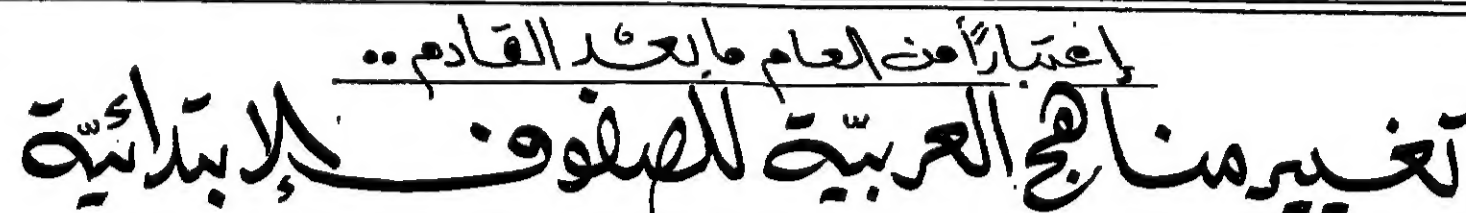 إعتباراً من العام ما بعد القادم ..
تغيير مناهج العربيّة للصفوف الإبتدائيّة